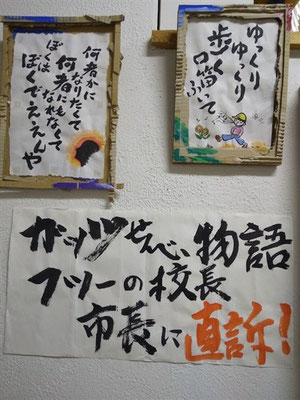 何者かに
なりたくて
何者にも
なれなくて
ぼくは
ぼくでええんや
ゆっくり
ゆっくり
歩く
口笛ふいて
ガッツせんべい物語
フツーの校長
市長に直訴!